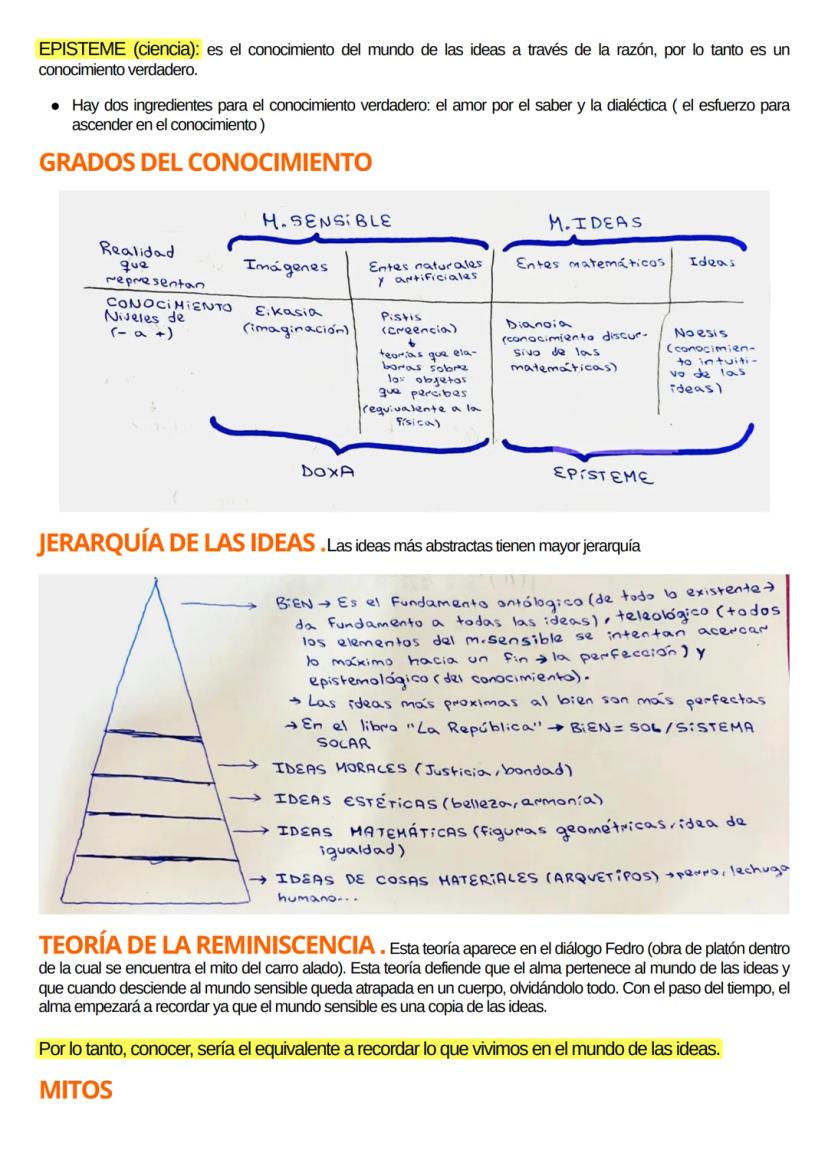 EPISTEME (ciencia): es el conocimiento del mundo de las ideas a través de la razón, por lo tanto es un
conocimiento verdadero.
● Hay dos ingredientes para el conocimiento verdadero: el amor por el saber y la dialéctica ( el esfuerzo para
ascender en el conocimiento )
GRADOS DEL CONOCIMIENTO
M.SENSiBLE
M.IDEAS
Realidad
que
representan
Imágenes
Entes naturales
y artificiales
Entes matemáticos
Ideas
CONOCiMiENTO
Niveles de
(- a +)
Eikasia
(imaginación)
Pistis
(creencia)
↓
teorías que ela-
boras sobre
los objetos
que percibes
(equivalente a la
física)
Dianoia
(conocimiento discur-
sivo de las
matemáticas)
Noesis
(conocimien-
to intuiti-
vo de las
ideas)
DOXA
EPíSTEME
JERARQUÍA DE LAS IDEAS .Las ideas más abstractas tienen mayor jerarquía
BiEN → Es el fundamento ontólogico (de todo lo existente →
da fundamento a todas las ideas), teleológico (todos
los elementos del m.sensible se intentan acercar
lo máximo hacia un fin → la perfección) y
epistemológico (del conocimiento).
→ Las ideas más proximas al bien son más perfectas
→ En el libro "La República" → BiEN = SOL / SiSTEMA
SOLAR
IDEAS MORALES (Justicia, bondad)
IDEAS ESTÉTiCAS (belleza, armonía)
IDEAS MATEMÁTiCAS (figuras geométricas, idea de
igualdad)
IDEAS DE COSAS MATERiALES (ARQUETiPOS) → perro, lechuga
humano...
TEORÍA DE LA REMINISCENCIA . Esta teoría aparece en el diálogo Fedro (obra de platón dentro
de la cual se encuentra el mito del carro alado). Esta teoría defiende que el alma pertenece al mundo de las ideas y
que cuando desciende al mundo sensible queda atrapada en un cuerpo, olvidándolo todo. Con el paso del tiempo, el
alma empezará a recordar ya que el mundo sensible es una copia de las ideas.
Por lo tanto, conocer, sería el equivalente a recordar lo que vivimos en el mundo de las ideas.
MITOS